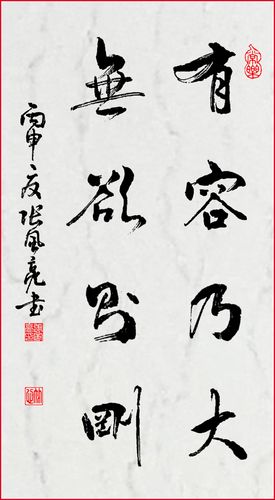 有容乃大
無欲則剛
丙申之夏張風亮書